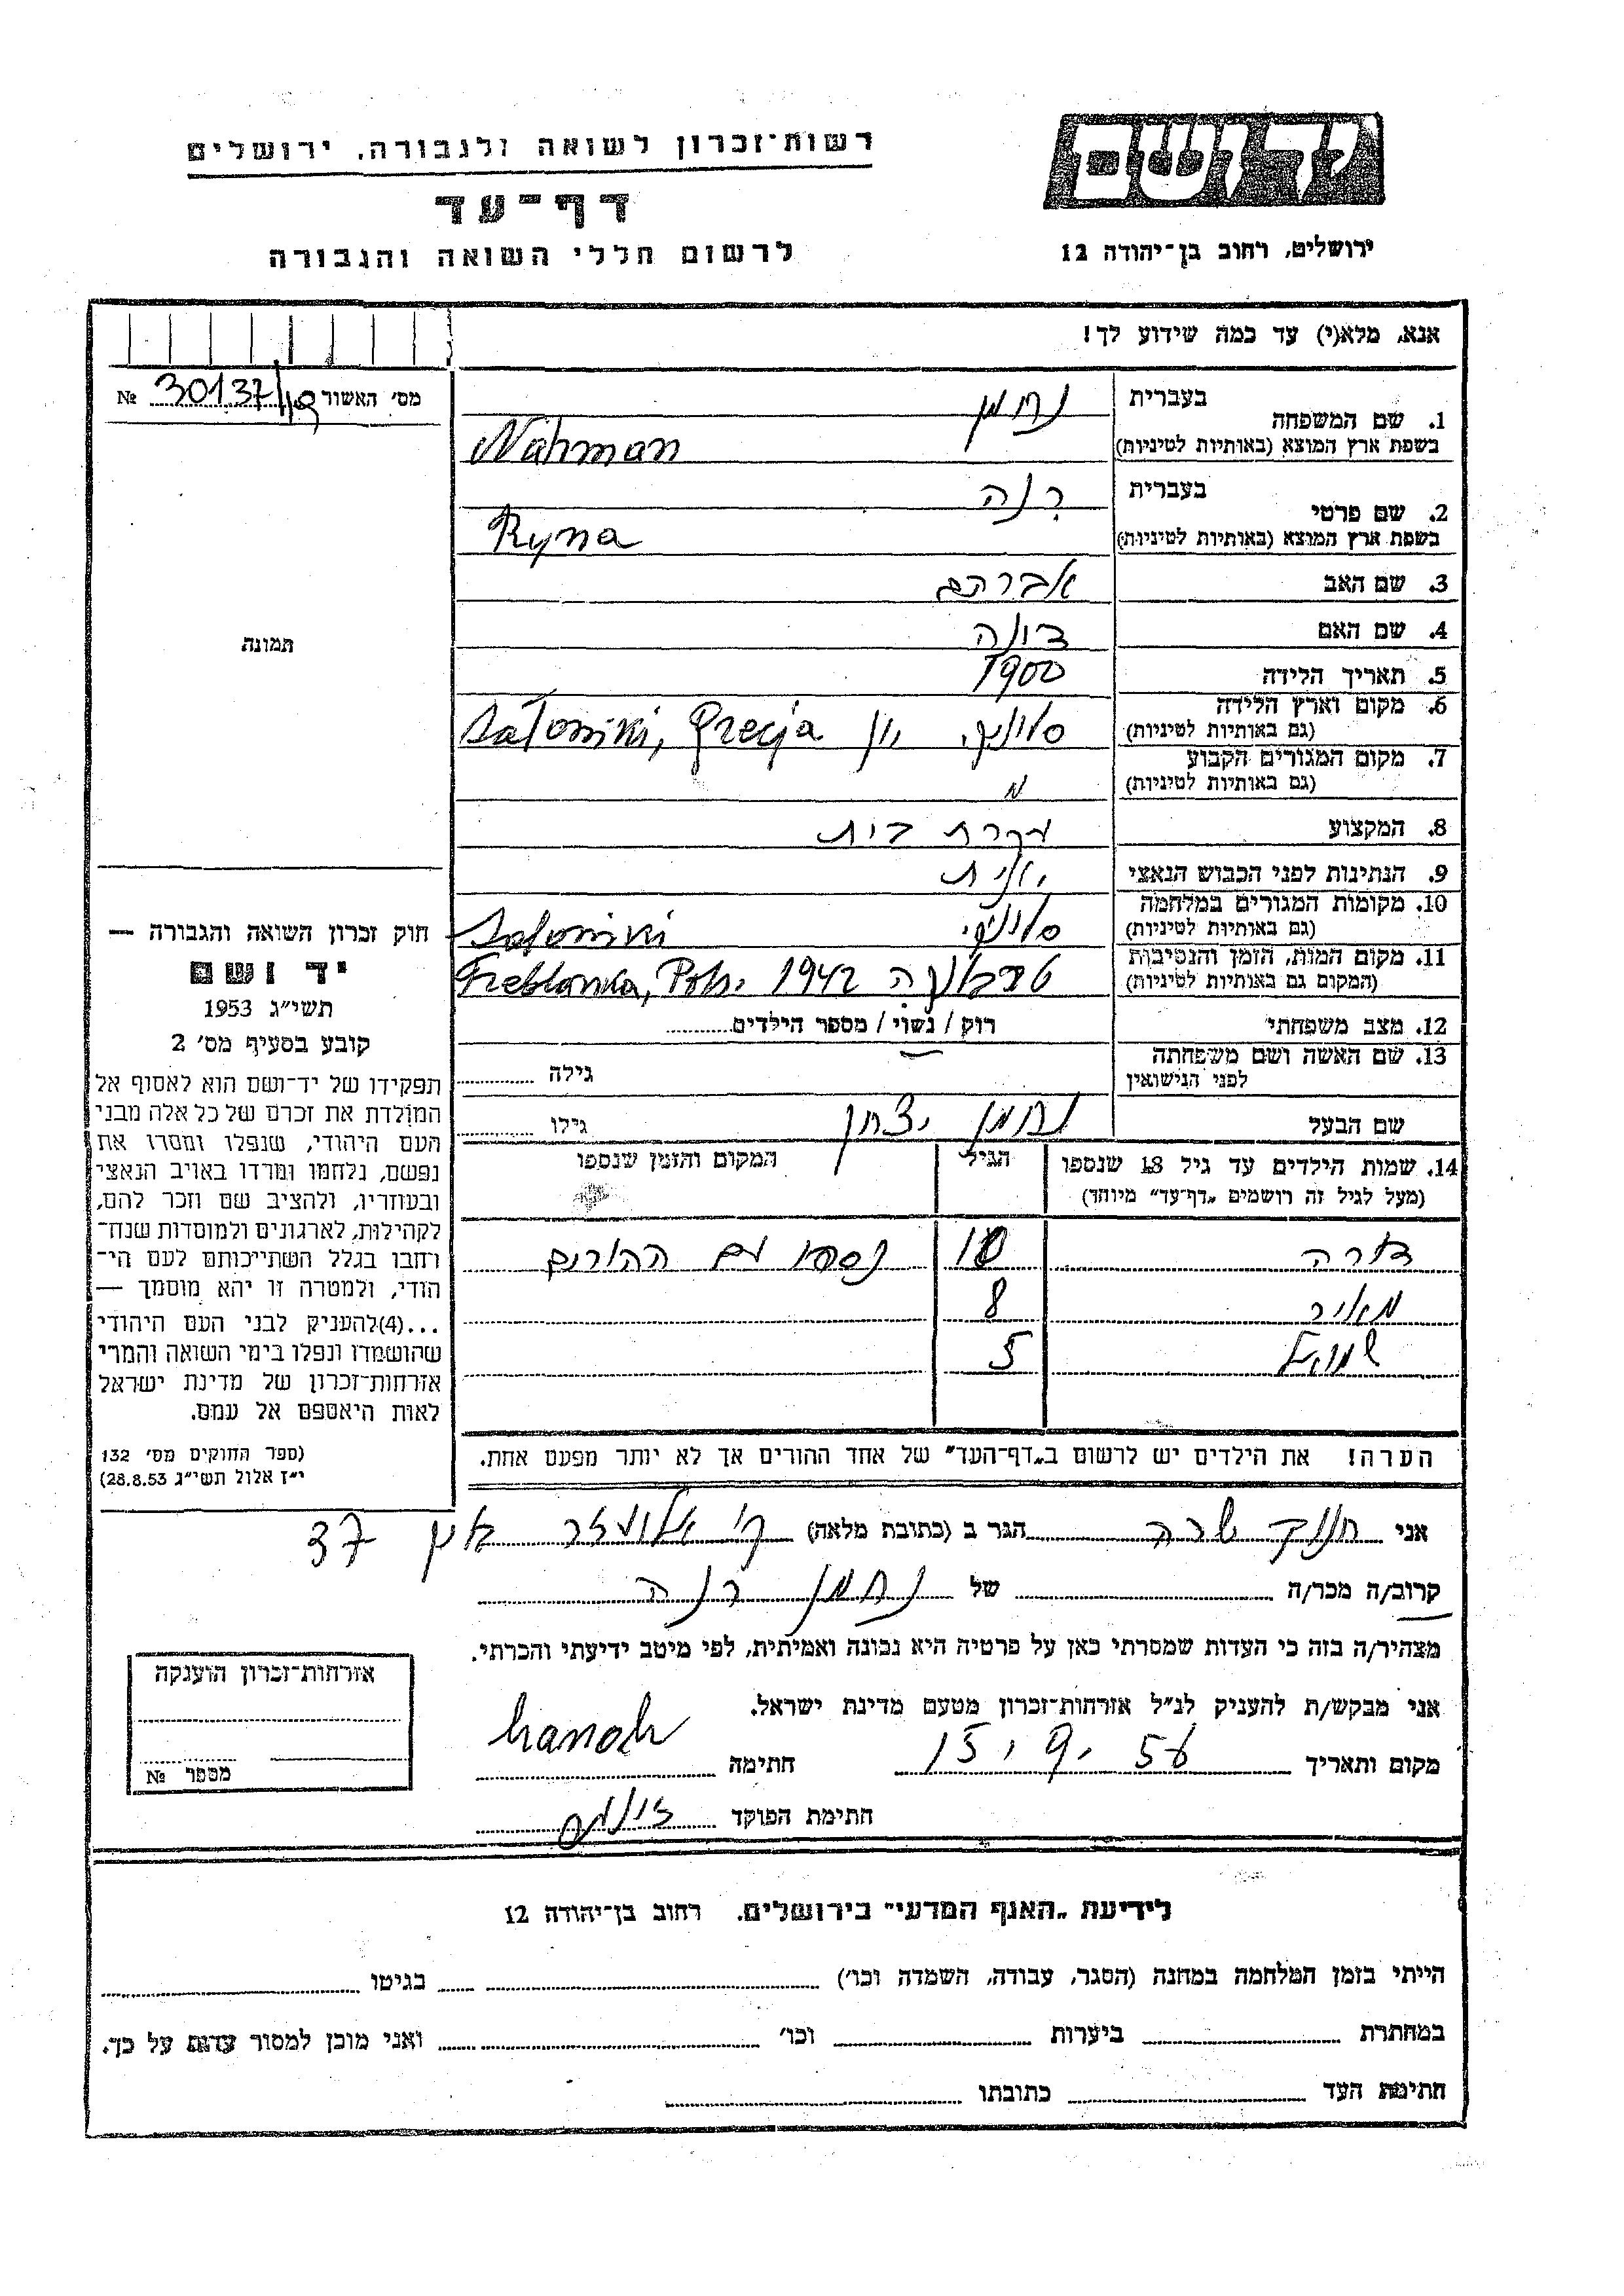 רשות־זכרון לשואה ולגבורה, ירושלים
דף־עד
לרשום חללי השואה והגבורה
יד ושם
ירושלים, רחוב בן־יהודה 12
אנא, מלא(י) עד כמה שידוע לך!
מס׳ האשור № 30137
תמונה
1. שם המשפחה בעברית נחמן
בשפת ארץ המוצא (באותיות לטיניות) Nahman
2. שם פרטי בעברית רנה
בשפת ארץ המוצא (באותיות לטיניות) Ryna
3. שם האב אברהם
4. שם האם בונה
5. תאריך הלידה 1900
6. מקום וארץ הלידה (גם באותיות לטיניות) סלוניקי, יון Saloniki, Grecja
7. מקום המגורים הקבוע (גם באותיות לטיניות) "
8. המקצוע עקרת בית
9. הנתינות לפני הכבוש הנאצי יונית
10. מקומות המגורים במלחמה (גם באותיות לטיניות) סלוניקי Saloniki
11. מקום המות, הזמן והנסיבות (המקום גם באותיות לטיניות) טרבלינקה 1942 Treblonka, Pol.
12. מצב משפחתי רוק / נשוי / מספר הילדים
13. שם האשה ושם משפחתה לפני הנישואין גילה
שם הבעל נחמן יצחק גילו
14. שמות הילדים עד גיל 18 שנספו (מעל לגיל זה רושמים „דף־עד״ מיוחד) הגיל המקום והזמן שנספו
דורה 10 נספו עם ההורים
מאיר 8
שמואל 5
הערה! את הילדים יש לרשום ב„דף־העד״ של אחד ההורים אך לא יותר מפעם אחת.
חוק זכרון השואה והגבורה —
יד ושם
תשי״ג 1953
קובע בסעיף מס׳ 2
תפקידו של יד־ושם הוא לאסוף אל
המולדת את זכרם של כל אלה מבני
העם היהודי, שנפלו ומסרו את
נפשם, נלחמו ומרדו באויב הנאצי
ובעוזריו, ולהציב שם וזכר להם,
לקהילות, לארגונים ולמוסדות שנח־
רחבו בגלל השתייכותם לעם הי־
הודי, ולמטרה זו יהא מוסמך —
...(4)להעניק לבני העם היהודי
שהושמדו ונפלו בימי השואה והמרי
אזרחות־זכרון של מדינת ישראל
לאות היאספם אל עמם.
(ספר החוקים מס׳ 132
י״ז אלול תשי״ג 28.8.53)
אני חנוך שרה הגר ב (כתובת מלאה) ק׳ אליעזר 37
קרוב/ה מכר/ה של נחמן רנה
מצהיר/ה בזה כי העדות שמסרתי כאן על פרטיה היא נכונה ואמיתית, לפי מיטב ידיעתי והכרתי.
אני מבקש/ת להעניק לנ״ל אזרחות־זכרון מטעם מדינת ישראל.
מקום ותאריך 15.9.56 חתימה hanoh
חתימת הפוקד
אזרחות־זכרון הוענקה
מספר №
לידיעת „האגף המדעי״ בירושלים. רחוב בן־יהודה 12
הייתי בזמן המלחמה במחנה (הסגר, עבודה, השמדה וכו׳) בגיטו
במחתרת ביערות וכו׳ ואני מוכן למסור עדות על כך.
חתימת העד כתובתו